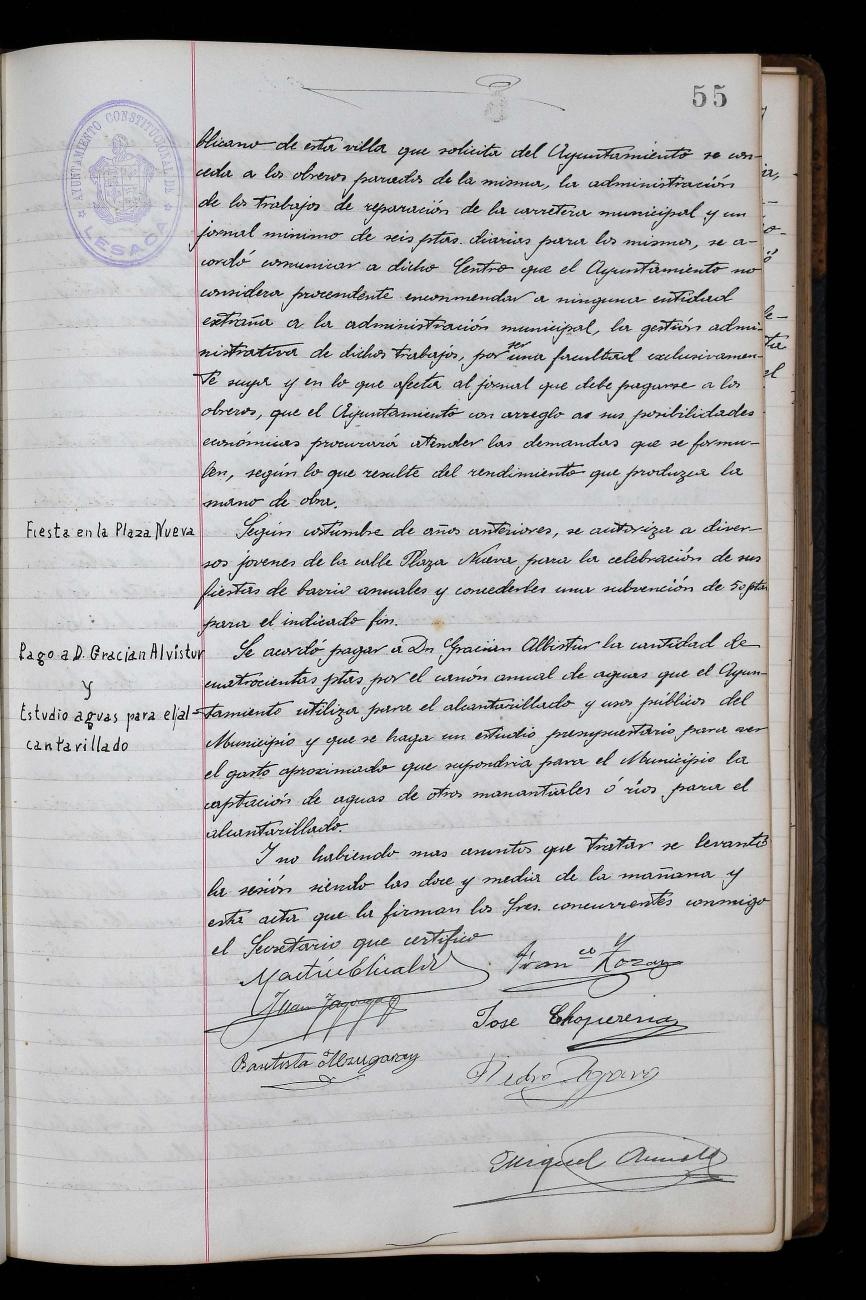 55
AYUNTAMIENTO CONSTITUCIONAL DE
LESACA
blicano de esta villa que solicita del Ayuntamiento se con-
ceda a los obreros parados de la misma, la administración
de los trabajos de reparación de la carretera municipal y un
jornal minimo de seis ptas. diarias para los mismos, se a-
cordó comunicar a dicho Centro que el Ayuntamiento no
considera procendente encomendar a ninguna entidad
extraña a la administración municipal, la gestión admi-
nistrativa de dichos trabajos, por ser una facultad exclusivamen-
te suya y en lo que afecta al jornal que debe pagarse a los
obreros, que el Ayuntamiento con arreglo as sus posibilidades
económicas procurará atender las demandas que se formu-
len, según lo que resulte del rendimiento que produzca la
mano de obra.
Fiesta en la Plaza Nueva
Según costumbre de años anteriores, se autoriza a diver-
sos jovenes de la calle Plaza Nueva, para la celebración de sus
fiestas de barrio anuales y concederles una subvención de 50 ptas
para el indicado fin.
Pago a D. Gracian Alvistur
y
Estudio aguas para el al-
cantarillado
Se acordó pagar a Dn Gracian Albistur la cantidad de
cuatrocientas ptas por el canón annual de aguas que el Ayun-
tamiento utiliza para el alcantarillado y usos públicos del
Municipio y que se haga un estudio presupuestario para ver
el gasto aproximado que supondria para el Municipio la
captación de aguas de otros manantiales ó ríos para el
alcantarillado.
Y no habiendo mas asuntos que tratar se levantó
la sesión siendo las doce y media de la mañana y
esta acta que la firman los Sres. concurrentes conmigo
el Secretario que certifico
Franco
Juan
Jose Choperena
Bautista Alzugaray
Pedro
Miguel